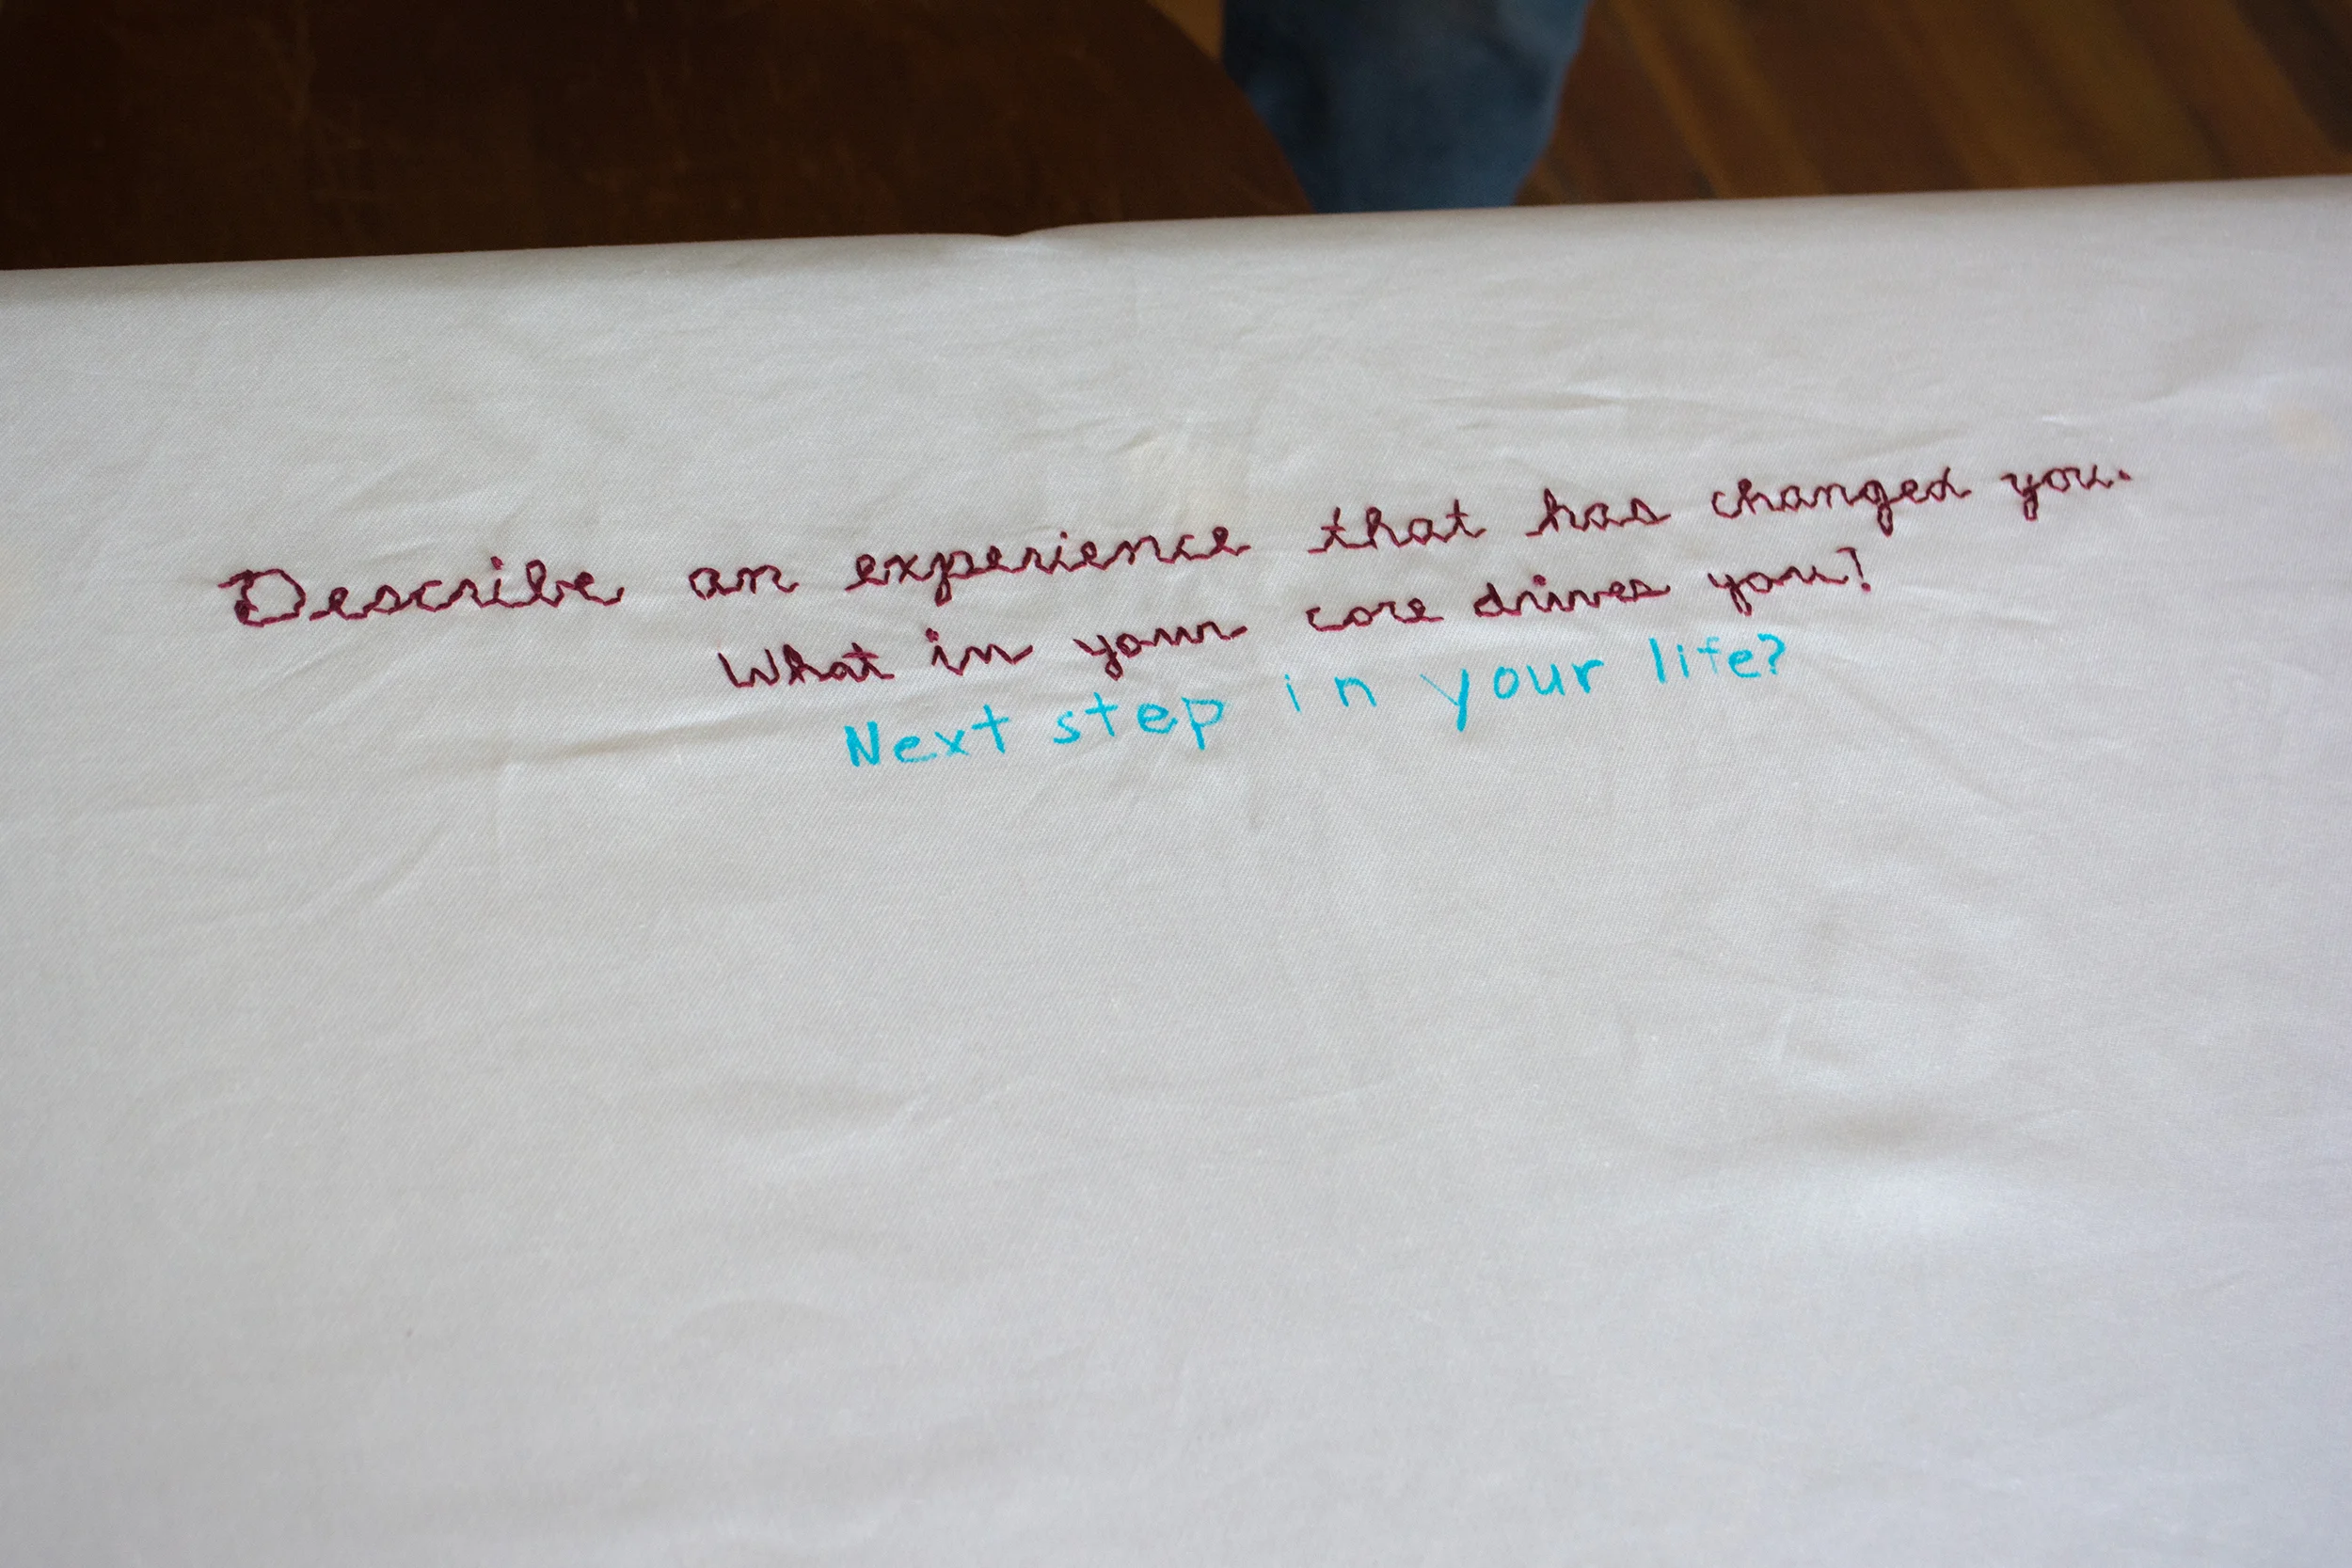 Describe an experience that has changed you.
What in your core drives you?
Next step in your life?